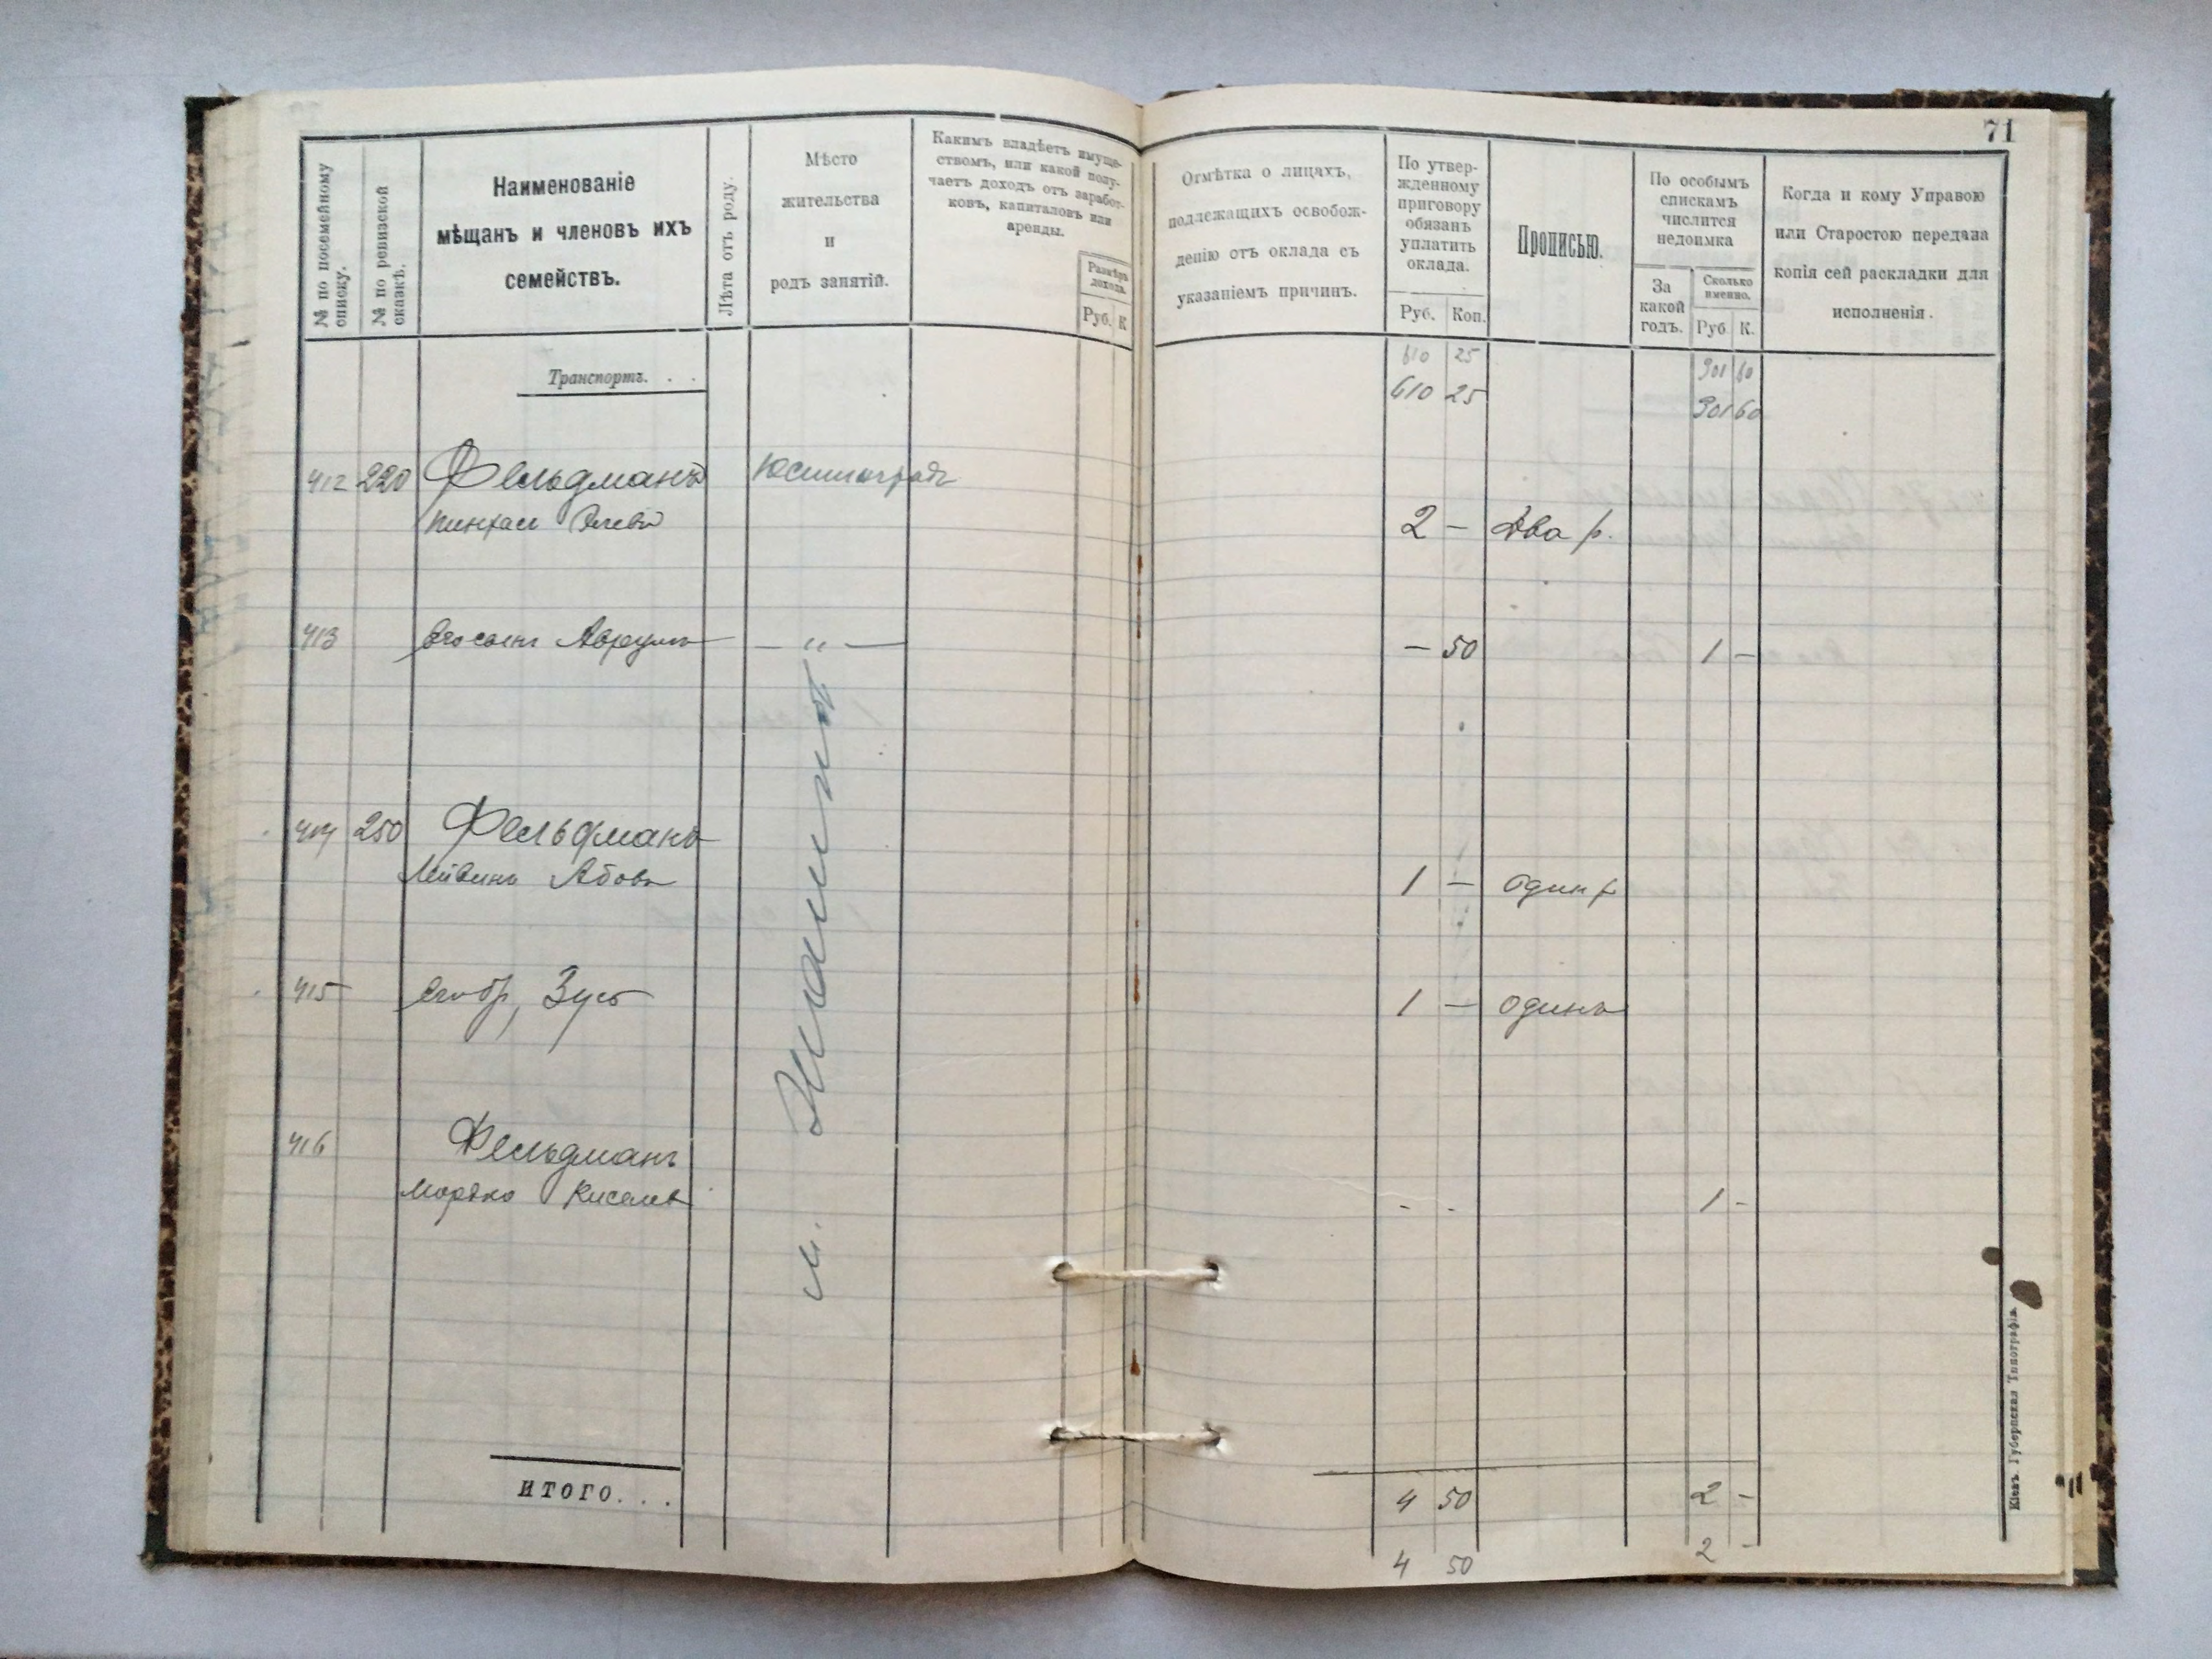 71
№ по посемейному списку.
№ по ревизской сказкѣ.
Наименованіе
мѣщанъ и членовъ ихъ
семействъ.
Лѣта отъ роду.
Мѣсто
жительства
и
родъ занятій.
Какимъ владѣетъ имуще-
ствомъ, или какой полу-
чаетъ доходъ отъ заработ-
ковъ, капиталовъ или
аренды.
Размѣръ
дохода.
Руб. К
Отмѣтка о лицахъ,
подлежащихъ освобож-
денію отъ оклада съ
указаніемъ причинъ.
По утвер-
жденному
приговору
обязанъ
уплатить
оклада.
Руб. Коп.
Прописью.
По особымъ
спискамъ
числится
недоимка
За
какой
годъ.
Сколько
именно.
Руб К.
Когда и кому Управою
или Старостою передана
копія сей раскладки для
исполненія.
Транспортъ. . .
610 25 301 60
610 25 301 60
412 220 Фельдманъ Юстиноградъ
Пинхас 2 — Два р.
413 Его сынъ Аврумъ — " — — 50 1 —
414 250 Фельдманъ
Лейвинъ Абовъ 1 — один р
415 Его бр, Зусь 1 — одинъ
416 Фельдманъ
Мордко Киселев - - 1 -
м.
ИТОГО. . .
4 50 2 -
4 50 2 -
Кіевъ Губернская Типографія.